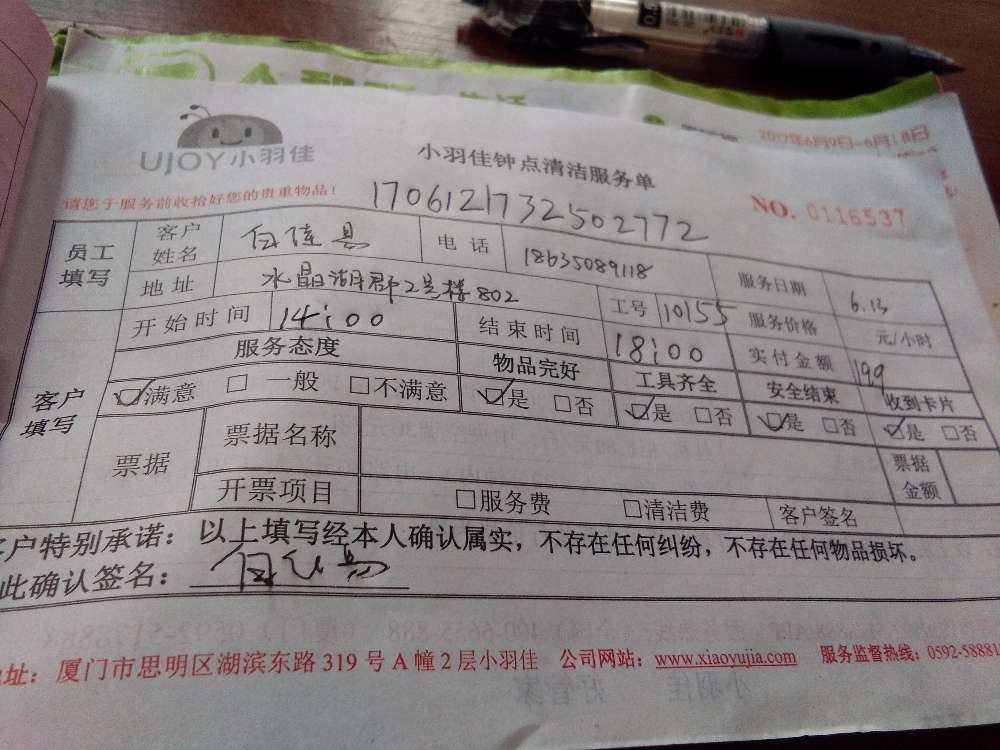 2017年6月9日-6月18日
UJOY小羽佳
小羽佳钟点清洁服务单
请您于服务前收拾好您的贵重物品！
170612173250277​2
NO. 0116537
员工填写
客户姓名
电话 18635089118
服务日期 6.13
地址 水晶湖郡2号楼802
工号 10155
服务价格 元/小时
客户填写
开始时间 14:00
结束时间 18:00
实付金额 199
服务态度 物品完好 工具齐全 安全结束 收到卡片
☑满意 □一般 □不满意 ☑是 □否 ☑是 □否 ☑是 □否 ☑是 □否
票据
票据名称
票据金额
开票项目 □服务费 □清洁费 客户签名
客户特别承诺：以上填写经本人确认属实，不存在任何纠纷，不存在任何物品损坏。
此确认签名：
地址：厦门市思明区湖滨东路 319 号 A 幢 2 层小羽佳 公司网站：www.xiaoyujia.com 服务监督热线：0592-58881